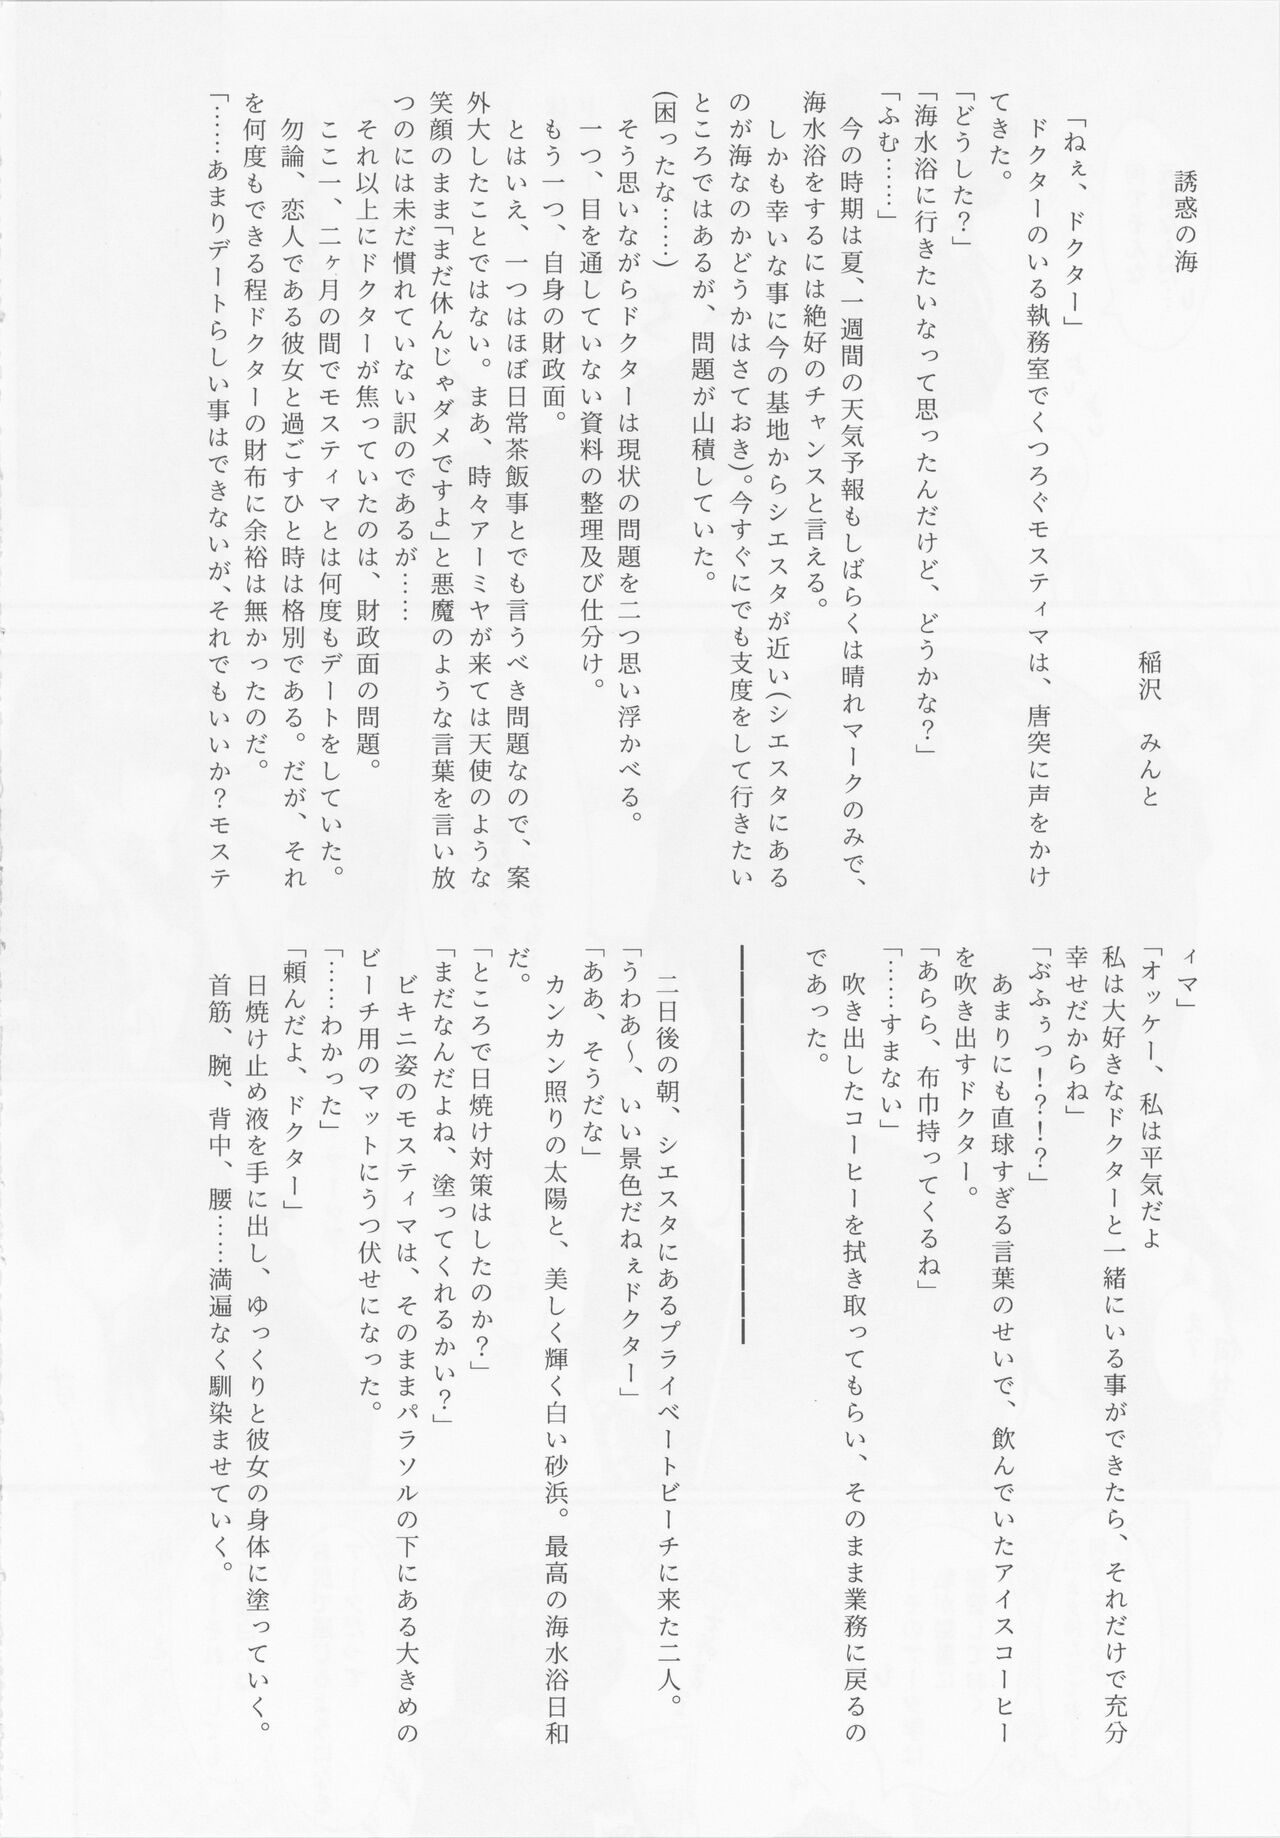 誘惑の海
稲沢　みんと
「ねぇ、ドクター」
　ドクターのいる執務室でくつろぐモスティマは、唐突に声をかけ
てきた。
「どうした？」
「海水浴に行きたいなって思ったんだけど、どうかな？」
「ふむ……」
　今の時期は夏、一週間の天気予報もしばらくは晴れマークのみで、
海水浴をするには絶好のチャンスと言える。
　しかも幸いな事に今の基地からシエスタが近い(シエスタにある
のが海なのかどうかはさておき)。今すぐにでも支度をして行きたい
ところではあるが、問題が山積していた。
(困ったな……)
　そう思いながらドクターは現状の問題を二つ思い浮かべる。
　一つ、目を通していない資料の整理及び仕分け。
　もう一つ、自身の財政面。
　とはいえ、一つはほぼ日常茶飯事とでも言うべき問題なので、案
外大したことではない。まあ、時々アーミヤが来ては天使のような
笑顔のまま「まだ休んじゃダメですよ」と悪魔のような言葉を言い放
つのには未だ慣れていない訳のであるが……
　それ以上にドクターが焦っていたのは、財政面の問題。
　ここ一、二ヶ月の間でモスティマとは何度もデートをしていた。
　勿論、恋人である彼女と過ごすひと時は格別である。だが、それ
を何度もできる程ドクターの財布に余裕は無かったのだ。
「……あまりデートらしい事はできないが、それでもいいか？モステ
ィマ」
「オッケー、私は平気だよ
私は大好きなドクターと一緒にいる事ができたら、それだけで充分
幸せだからね」
「ぶふぅっ！？！？」
　あまりにも直球すぎる言葉のせいで、飲んでいたアイスコーヒー
を吹き出すドクター。
「あらら、布巾持ってくるね」
「……すまない」
　吹き出したコーヒーを拭き取ってもらい、そのまま業務に戻るの
であった。
　二日後の朝、シエスタにあるプライベートビーチに来た二人。
「うわあ～、いい景色だねぇドクター」
「ああ、そうだな」
　カンカン照りの太陽と、美しく輝く白い砂浜。最高の海水浴日和
だ。
「ところで日焼け対策はしたのか？」
「まだなんだよね、塗ってくれるかい？」
　ビキニ姿のモスティマは、そのままパラソルの下にある大きめの
ビーチ用のマットにうつ伏せになった。
「……わかった」
「頼んだよ、ドクター」
　日焼け止め液を手に出し、ゆっくりと彼女の身体に塗っていく。
　首筋、腕、背中、腰……満遍なく馴染ませていく。